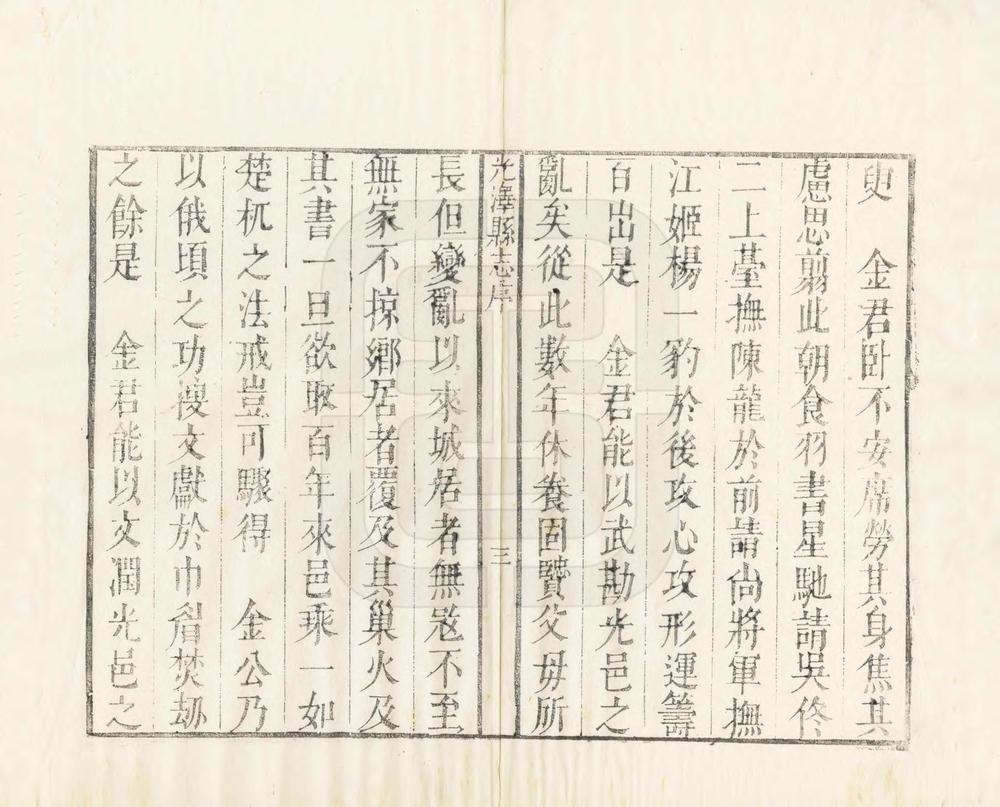 臾　金君臥不安席勞其身焦其
慮思剪此朝食羽書星馳請吳佟
二上䑓撫陳龍於前請尙將軍撫
江姬楊一豹於後攻心攻形運籌
百出是　金君能以武勘光邑之
亂矣從此數年休養固賢父毋所
光澤縣志序　三
長但變亂以來城居者無宼不至
無家不掠鄉居者覆及其巢火及
其書一旦欲取百年來邑乘一如
楚杌之法戒豈可驟得　金公乃
以俄頃之功搜文獻於巾眉焚刼
之餘是　金君能以文潤光邑之